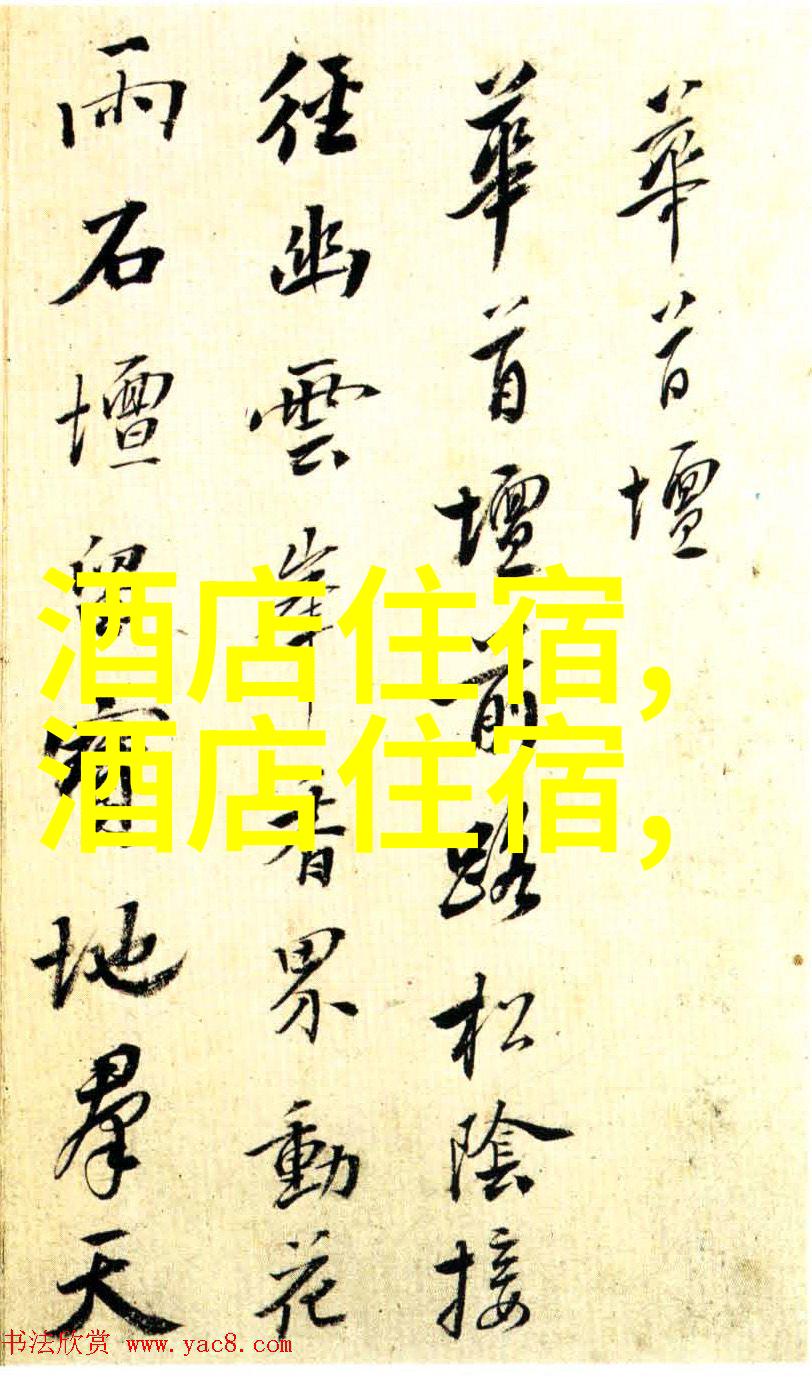 華首壇
華首壇前路松陰接
徑幽雲峯香界動花
雨石壇留地羣天
酒店住宿,
酒店住宿,
书法欣赏 www.yac8.com